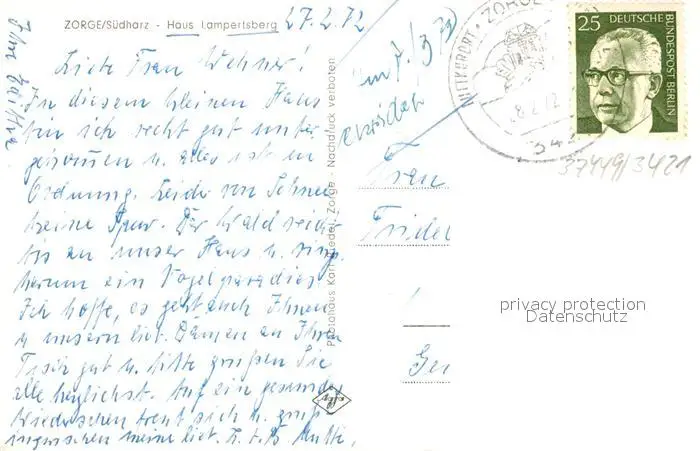 ZORGE/Südharz - Haus Lampertsberg
27.2.72
Liebe Frau Wehner!
In diesem kleinen Haus
bin ich recht gut unter-
gekommen u. alles ist in
Ordnung. Leider von Schnee
keine Spur. Der Wald reicht
bis an unser Haus u. rings
herum ein Vogelparadies.
Ich hoffe, es geht auch Ihnen
u. unsern lieb. Damen an Ihrem
Tisch gut u. bitte grüßen Sie
alle herzlichst. Auf ein gesundes
Wiedersehen freut sich u. grüßt
inzwischen meine lieb.
Ihre
Photohaus Karl Zorge - Nachdruck verboten
Agfa
Frau
HEILKURORT · ZORGE
34
25 DEUTSCHE BUNDESPOST BERLIN
37449/3421
privacy protection
Datenschutz